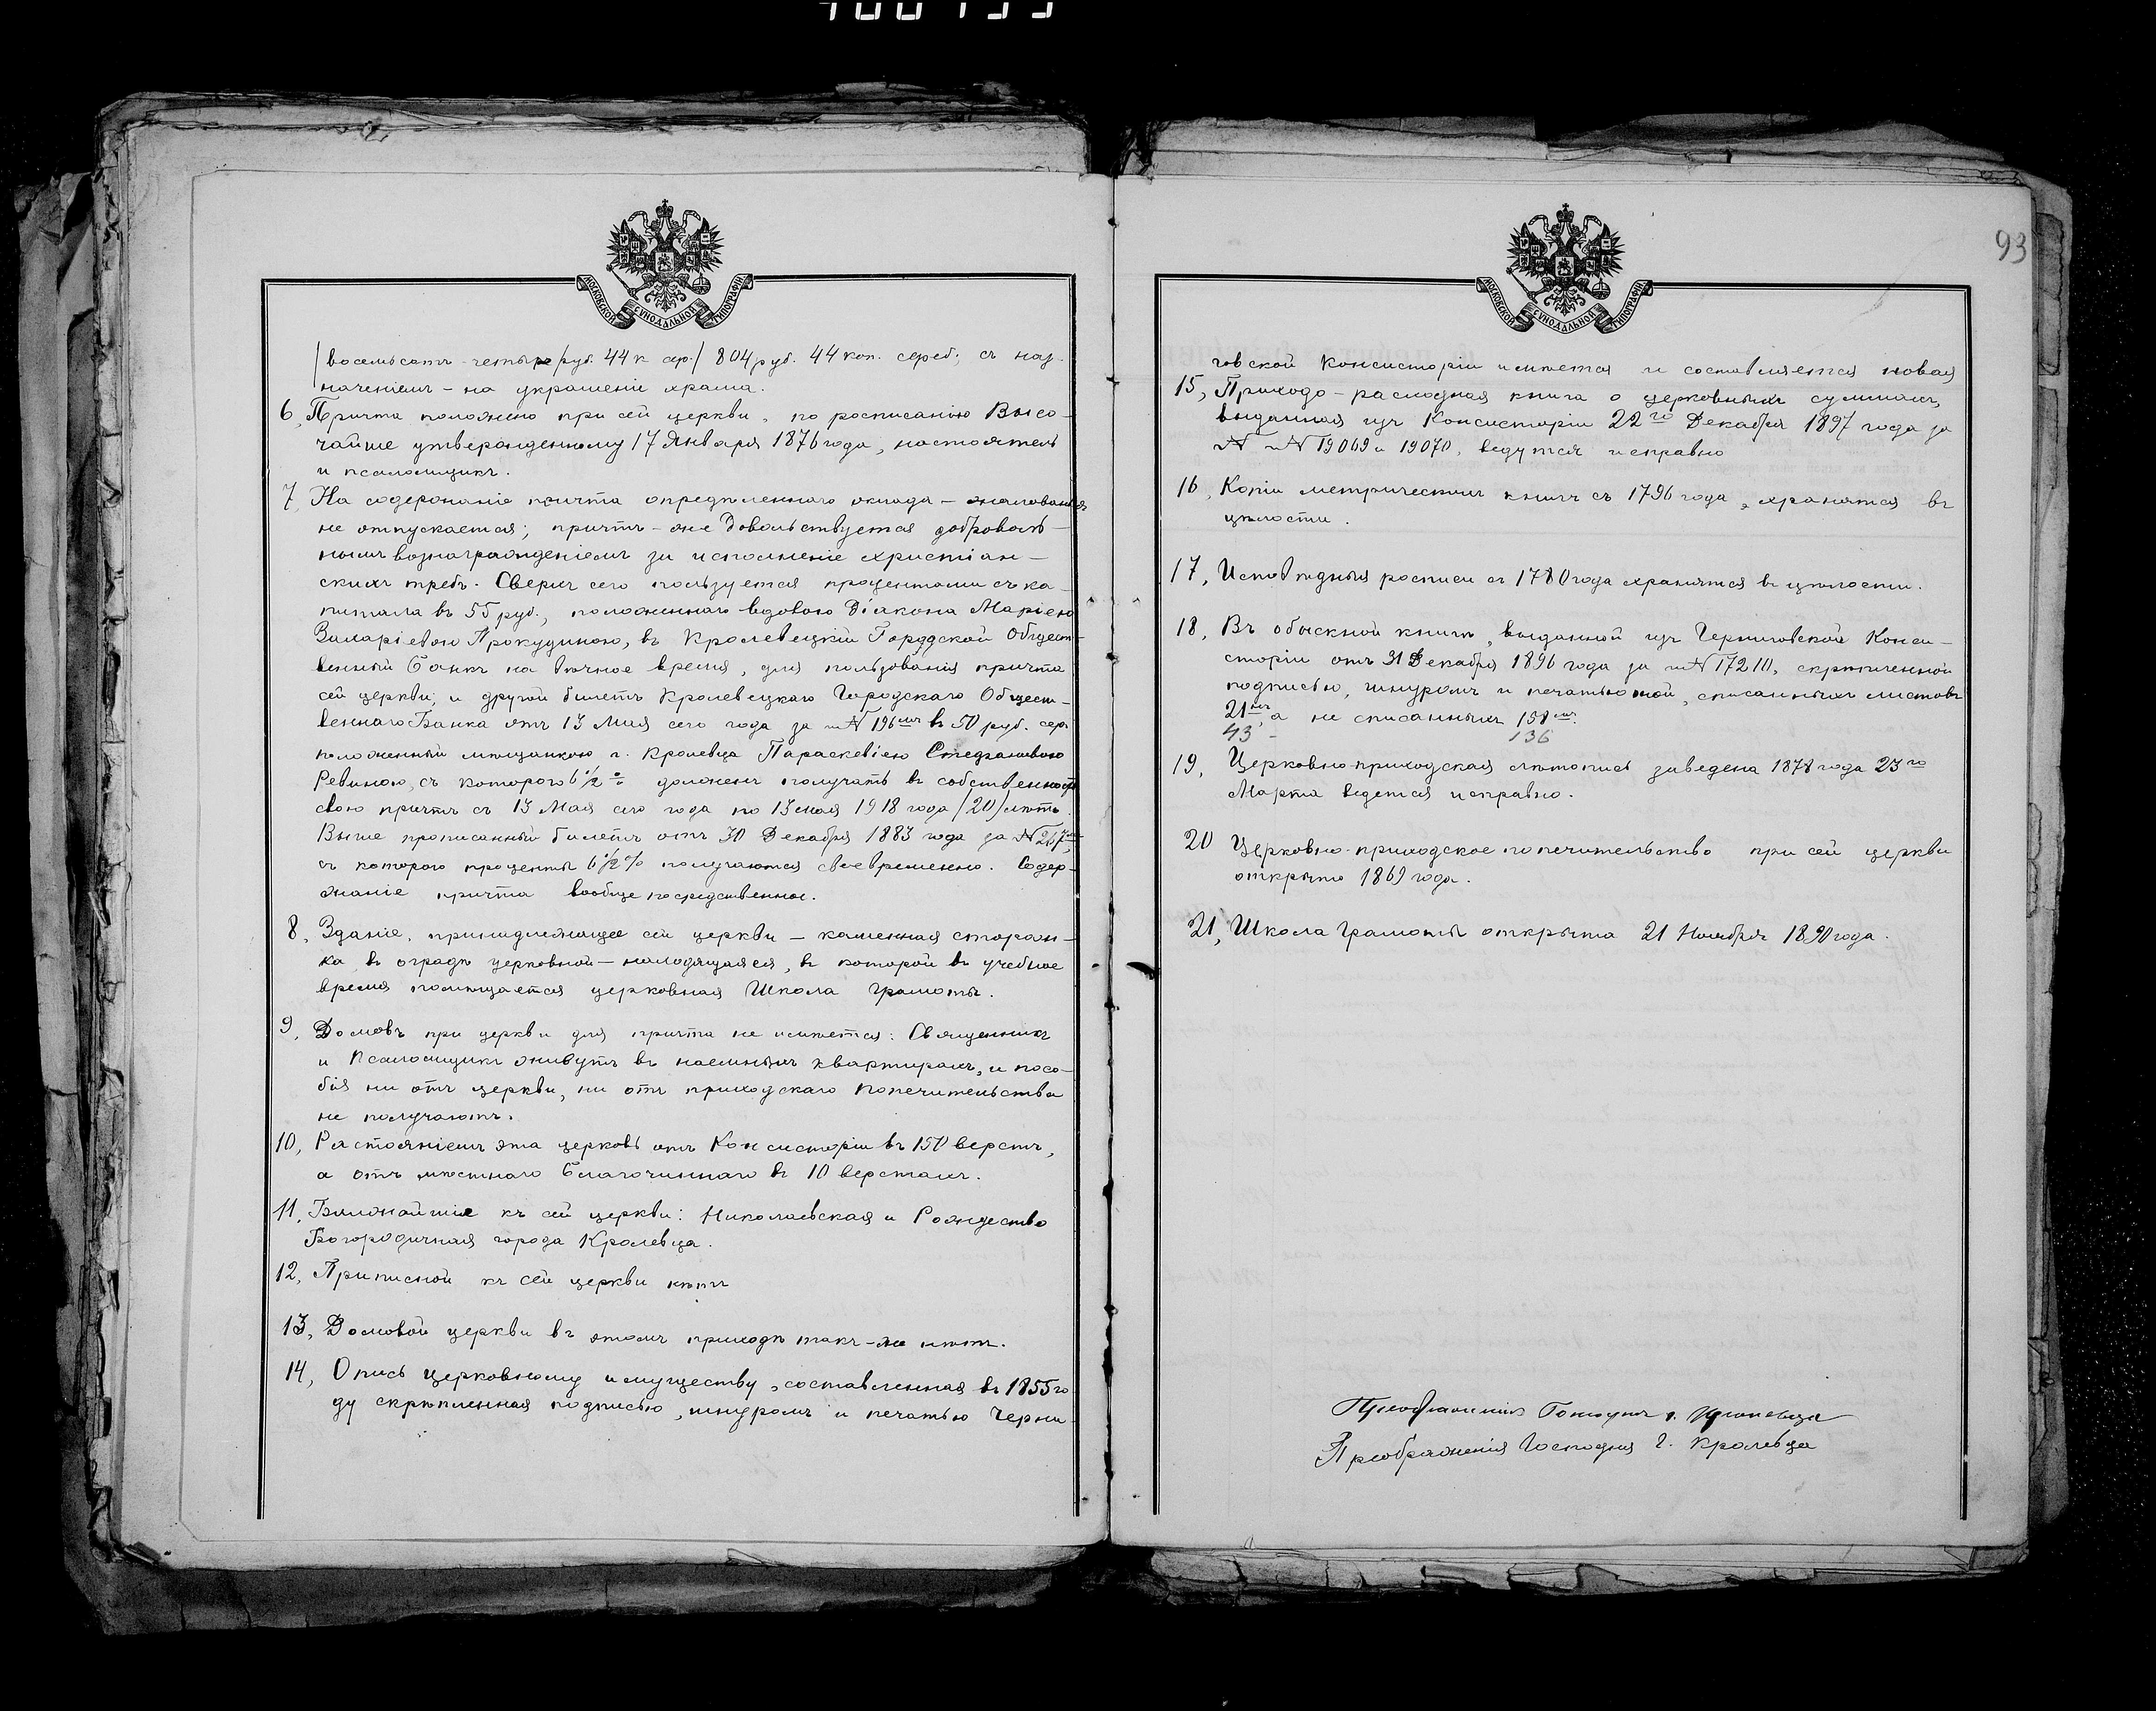 МОСКОВСКОЙ СѴНОДАЛЬНОЙ ТИПОГРАФІИ
/восемьсотъ-четыре/руб. 44 к сер./ 804 руб. 44 коп. сереб; съ наз-
наченіемъ - на украшеніе храма.
6, Причта положено при сей церкви, по росписанію Высо-
чайше утвержденному 17 Января 1876 года, настоятель
и псаломщикъ.
7, На содержаніе причта опредѣленнаго оклада - жалованья
не отпускается; причтъ - же довольствуется доброволь-
нымъ вознагражденіемъ за исполненіе христіан-
скихъ требъ. Сверхъ сего пользуется процентами съ ка-
питала въ 55 руб., положеннаго вдовою Діакона Маріею
Захаріевою Прокудиною, въ Кролевецкій Городской Общест-
венный Банкъ на вѣчное время, для пользованія причта
сей церкви; и другой билетъ Кролевецкаго Городскаго Общест-
веннаго Банка отъ 13 Мая сего года за № 196 въ 50 руб. сер
положенный мѣщанкою г. Кролевца Параскевіею Стефановою
Ревиною, съ котораго 6½% долженъ получать въ собственность
свою причтъ съ 13 Мая сего года по 13 мая 1918 года /20/ лѣтъ.
Выше прописанный билетъ отъ 30 Декабря 1883 года за № 267
съ котораго проценты 6½% получаются своевременно. Содер-
жаніе причта вообще посредственное.
8, Зданіе, принадлежащее сей церкви - каменная сторож-
ка, въ оградѣ церковной - находящаяся, въ которой въ учебное
время помѣщается церковная Школа грамоты.
9, Домовъ при церкви для причта не имѣется: Священникъ
и Псаломщикъ живутъ въ наемныхъ квартирахъ, и посо-
бія ни отъ церкви, ни отъ приходскаго попечительства
не получаютъ.
10, Растояніемъ эта церковь отъ Консисторіи въ 150 верстъ,
а отъ мѣстнаго Благочиннаго въ 10 верстахъ.
11, Ближайшіе къ сей церкви: Николаевская и Рождество
Богородичная города Кролевца.
12, Приписной къ сей церкви нѣтъ
13, Домовой церкви въ этомъ приходѣ такъ-же нѣтъ.
14, Опись церковному имуществу, составленная въ 1855 го-
ду скрѣпленная подписью, шнуромъ и печатью Черни-
93
МОСКОВСКОЙ СѴНОДАЛЬНОЙ ТИПОГРАФІИ
говской Консисторіи имѣется и составляется новая
15, Приходо-расходная книга о церковныхъ суммахъ,
выданная изъ Консисторіи 22го Декабря 1897 года за
№ и № 19069 и 19070, ведутся исправно
16, Копіи метрическихъ книгъ съ 1796 года, хранятся въ
цѣлости.
17, Исповѣдныя росписи съ 1780 года хранятся въ цѣлости.
18, Въ обыскной книгѣ, выданной изъ Черниговской Конси-
сторіи отъ 31 Декабря 1896 года за № 17210, скрѣпленной
подписью, шнуромъ и печатью той, списанныхъ листовъ
21, а не списанныхъ 158
43 - 136
19, Церковно-приходская лѣтопись заведена 1878 года 23го
Марта ведется исправно.
20 Церковно-приходское попечительство при сей церкви
открыто 1869 года.
21, Школа Грамоты открыта 21 Ноября 1890 года.
Преображенія Господня г. Кролевца
Преображенія Господня г. Кролевца